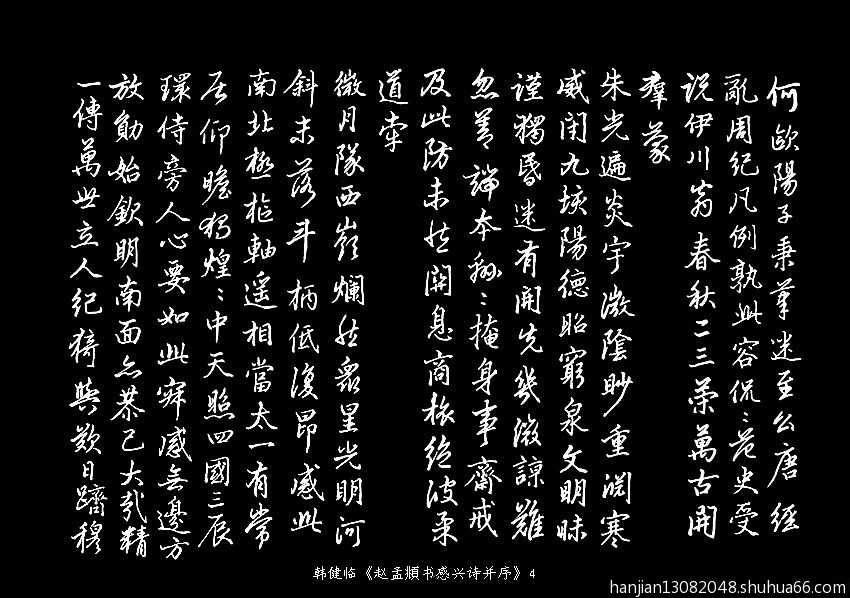 何歐陽子秉筆迷至公唐經
亂周紀凡例孰此容侃〻范史受
說伊川翁春秋二三策萬古開
羣蒙
朱光遍炎宇微陰眇重淵寒
威閉九垓陽德昭窮泉文明昧
謹獨昏迷有開先幾微諒難
忽善端本綿〻掩身事齋戒
及此防未然閉息商旅絕彼柔
道牽
微月隊西嶺爛然衆星光明河
斜未落斗柄低復昂感此
南北極樞軸遥相當太一有常
居仰瞻獨煌〻中天照四國三辰
環侍旁人心要如此寂感無邊方
放勛始欽明南面亦恭己大哉精
一傳萬世立人紀猗與歎日躋穆
韩健临《赵孟頫书感兴诗并序》4
hanjian13082048.shuhua66.com